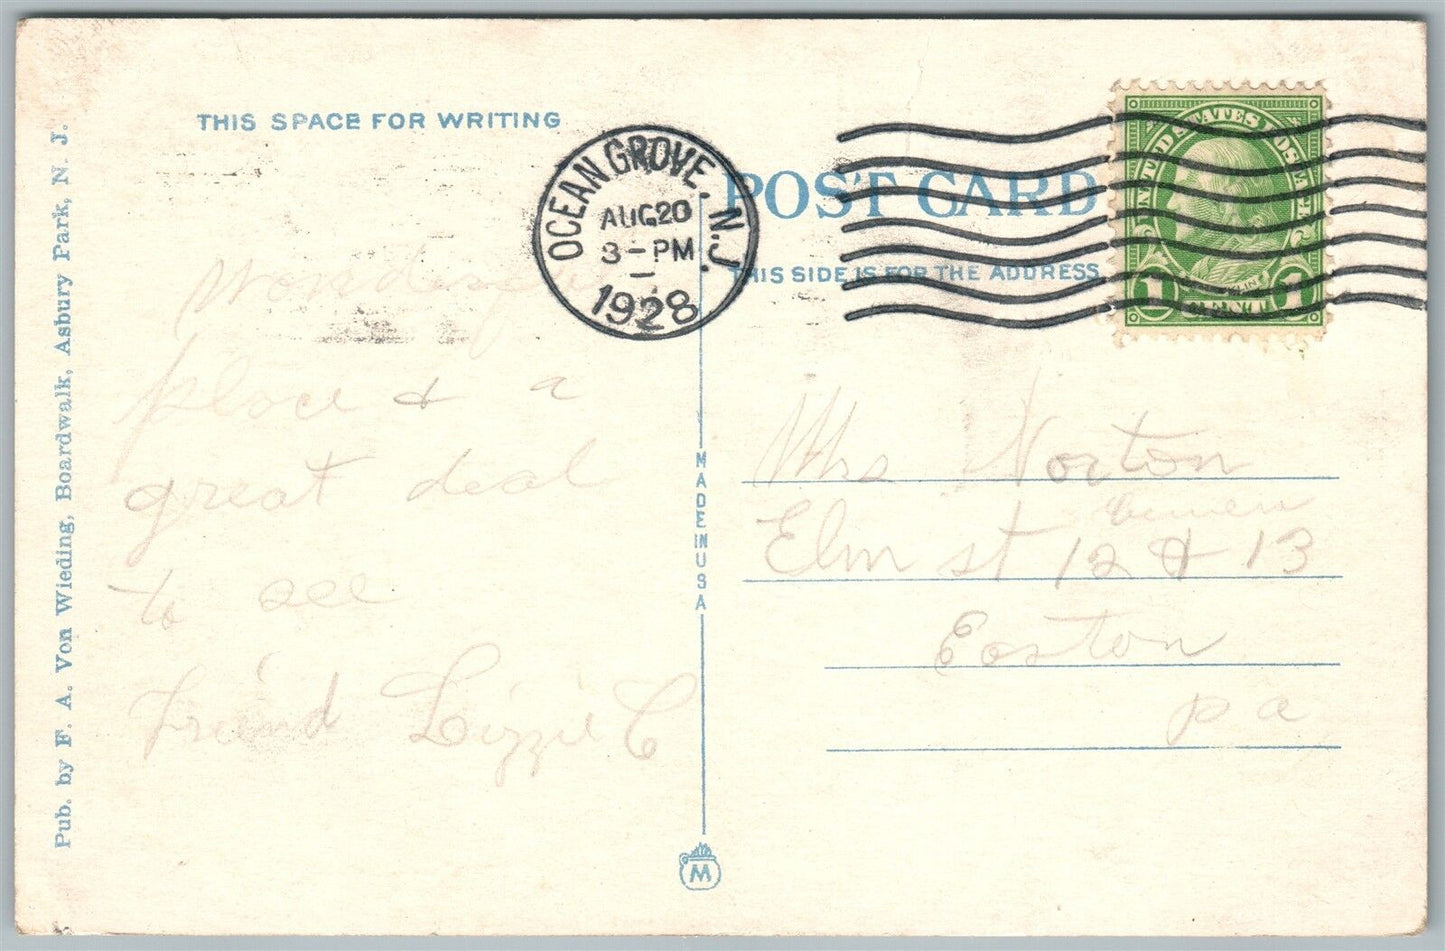 THIS SPACE FOR WRITING
Pub. by F. A. Von Wieding, Boardwalk, Asbury Park, N. J.
OCEAN GROVE, N.J.
AUG 20
3-PM
1928
POST CARD
THIS SIDE IS FOR THE ADDRESS
UNITED STATES POSTAGE
1 CENT 1
Wonderful
place & a
great deal
to see
Freind Lizzie C
MADE IN USA
Mrs Norton
Elm st 12 & 13
Easton
pa
M